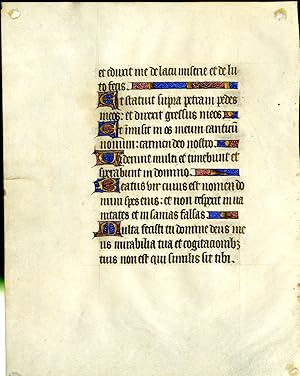 et eduxit me de lacu miserie et de lu
to fecis.
Et statuit supra petram pedes
meos: et direxit gressus meos.
Et inmisit in os meum canticū
novum: carmen deo nostro.
Videbunt multi et timebunt et
sperabunt in domino.
Beatus vir cuius est nomen do
mini spes eius: et non respexit in va
nitates et insanias falsas.
Multa fecisti tu domine deus me
us mirabilia tua et cogitacionibz
tuis non est qui similis sit tibi.